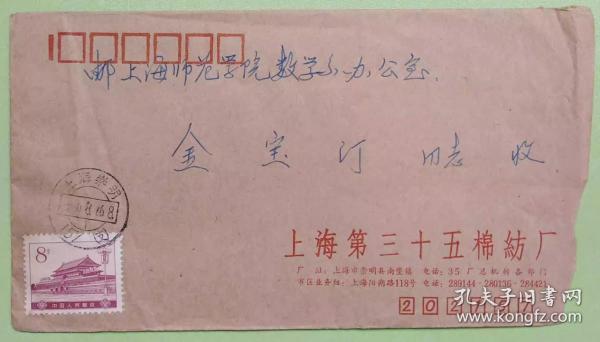 邮上海师范学院数学系办公室.
金宝汀 同志 收
上海崇明
8
中国人民邮政
上海第三十五棉紡厂
厂 址：上海市崇明县南堡镇 电话：35 厂总机转各部门
市区业务组：上海阳南路118号 电话：289144-280136-284421
孔夫子旧书网
www.kongfz.com